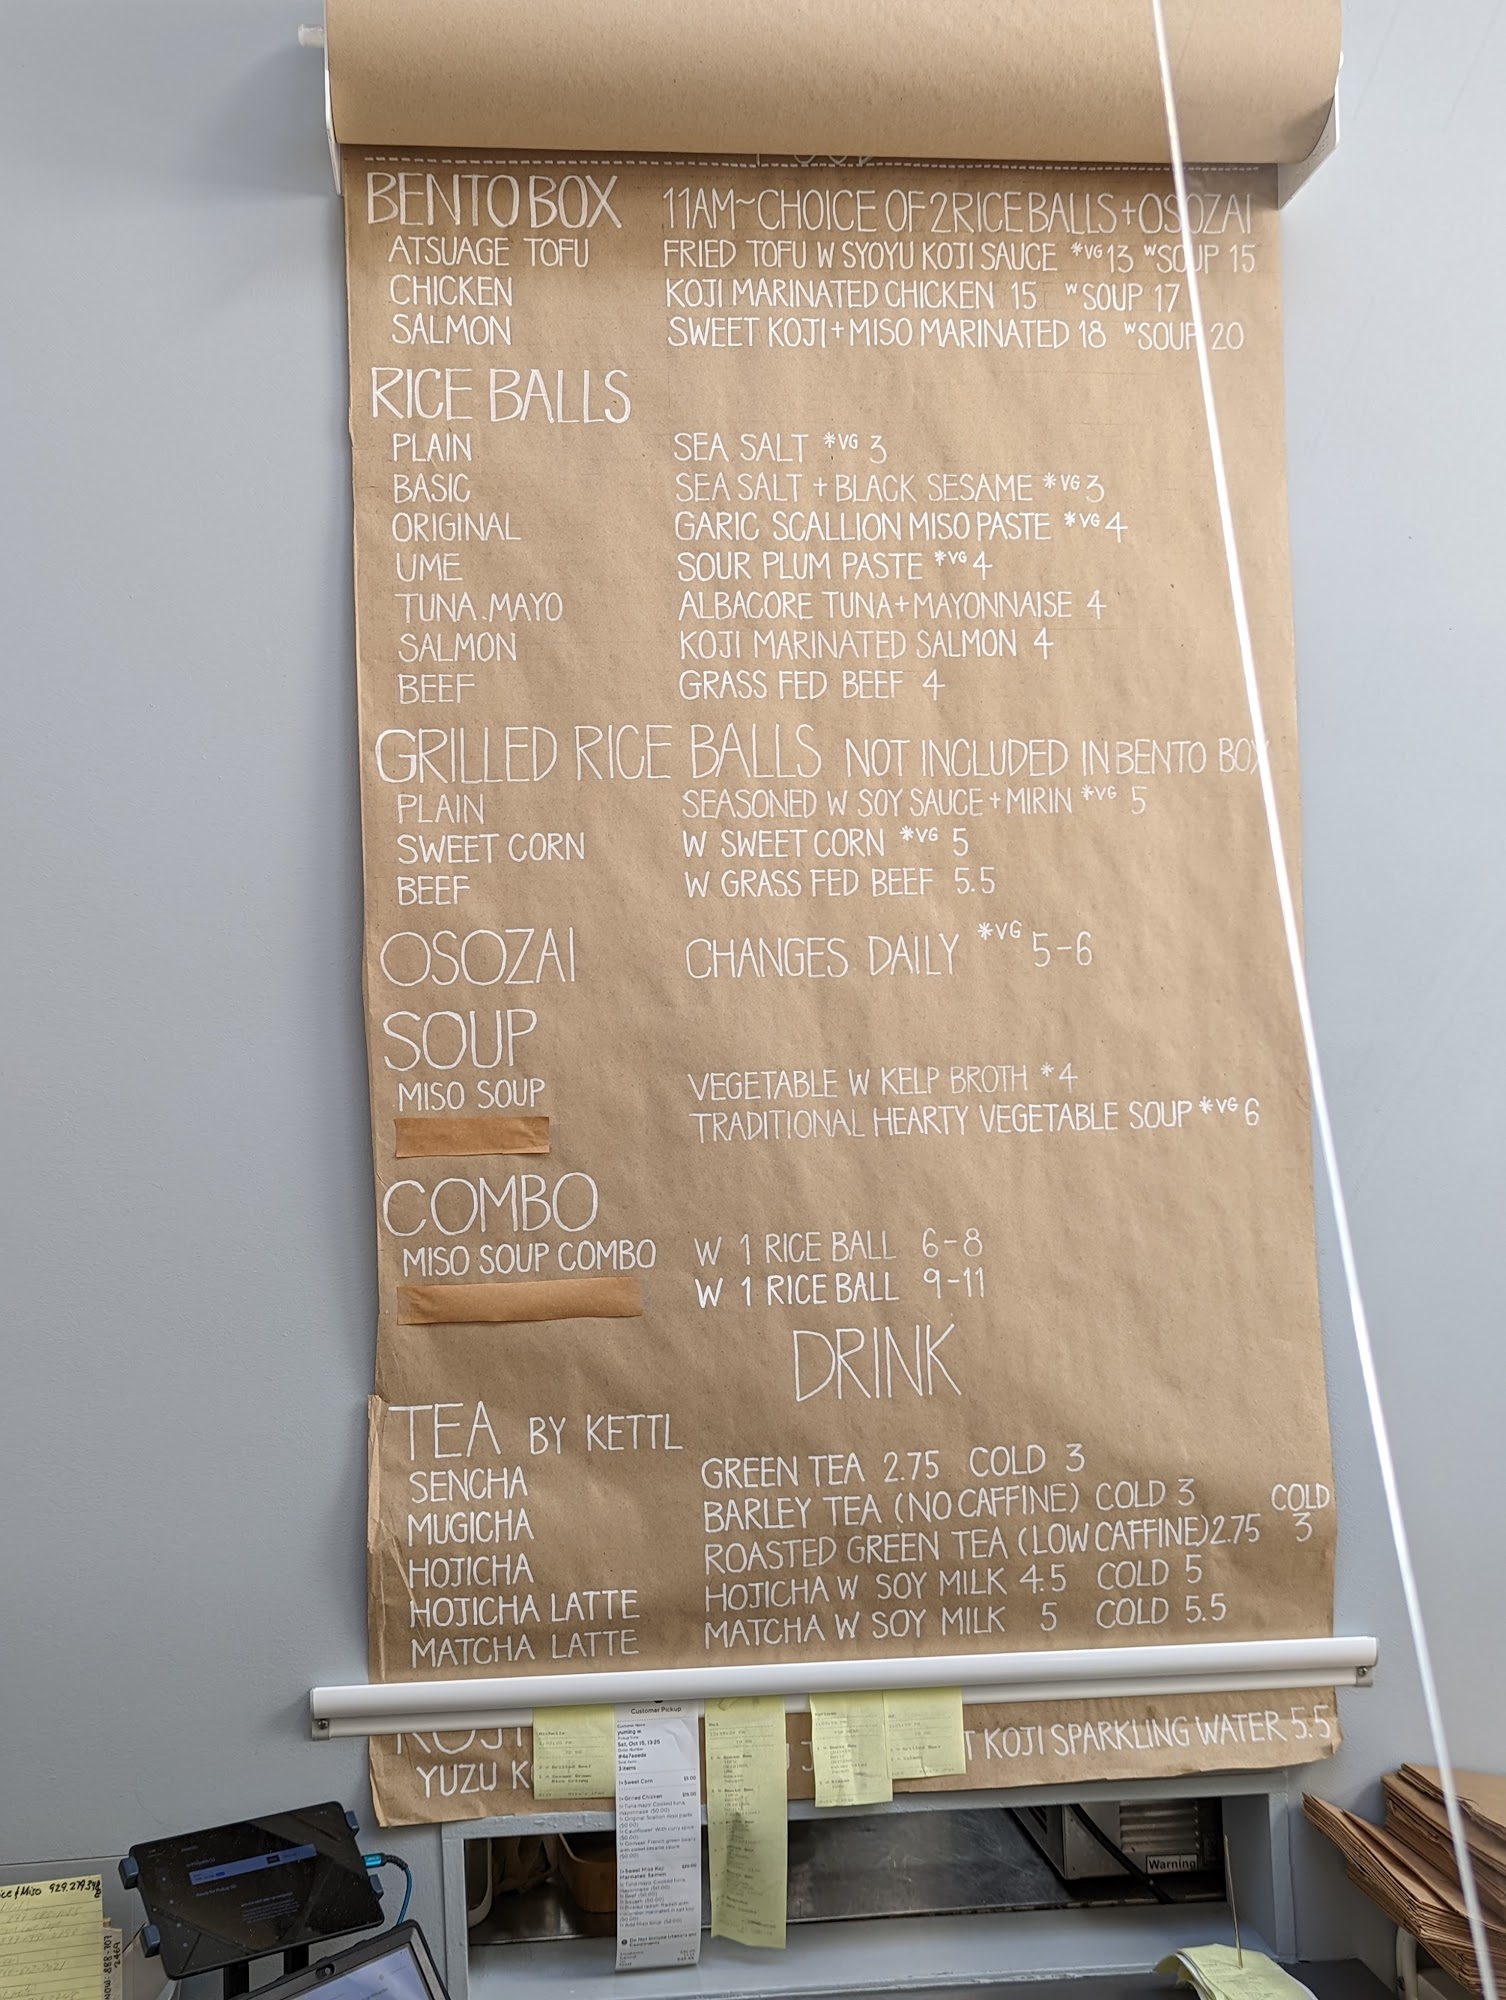 BENTO BOX 11AM~CHOICE OF 2 RICE BALLS + OSOZAI
ATSUAGE TOFU FRIED TOFU W SYOYU KOJI SAUCE *VG 13 W SOUP 15
CHICKEN KOJI MARINATED CHICKEN 15 W SOUP 17
SALMON SWEET KOJI + MISO MARINATED 18 W SOUP 20
RICE BALLS
PLAIN SEA SALT *VG 3
BASIC SEA SALT + BLACK SESAME *VG 3
ORIGINAL GARIC SCALLION MISO PASTE *VG 4
UME SOUR PLUM PASTE *VG 4
TUNA.MAYO ALBACORE TUNA+MAYONNAISE 4
SALMON KOJI MARINATED SALMON 4
BEEF GRASS FED BEEF 4
GRILLED RICE BALLS NOT INCLUDED IN BENTO BOX
PLAIN SEASONED W SOY SAUCE + MIRIN *VG 5
SWEET CORN W SWEET CORN *VG 5
BEEF W GRASS FED BEEF 5.5
OSOZAI CHANGES DAILY *VG 5-6
SOUP
MISO SOUP VEGETABLE W KELP BROTH *4
TRADITIONAL HEARTY VEGETABLE SOUP *VG 6
COMBO
MISO SOUP COMBO W 1 RICE BALL 6-8
W 1 RICE BALL 9-11
DRINK
TEA BY KETTL
SENCHA GREEN TEA 2.75 COLD 3
MUGICHA BARLEY TEA (NO CAFFINE) COLD 3
HOJICHA ROASTED GREEN TEA (LOW CAFFINE) 2.75 COLD 3
HOJICHA LATTE HOJICHA W SOY MILK 4.5 COLD 5
MATCHA LATTE MATCHA W SOY MILK 5 COLD 5.5
KOJI
YUZU K T KOJI SPARKLING WATER 5.5
Customer Pickup
Customer Name
yuming w
Pickup Date
Sat, Oct 15, 13:25
Order Number
3 items
1x Sweet Corn $5.00
1x Grilled Chicken $15.00
Warning